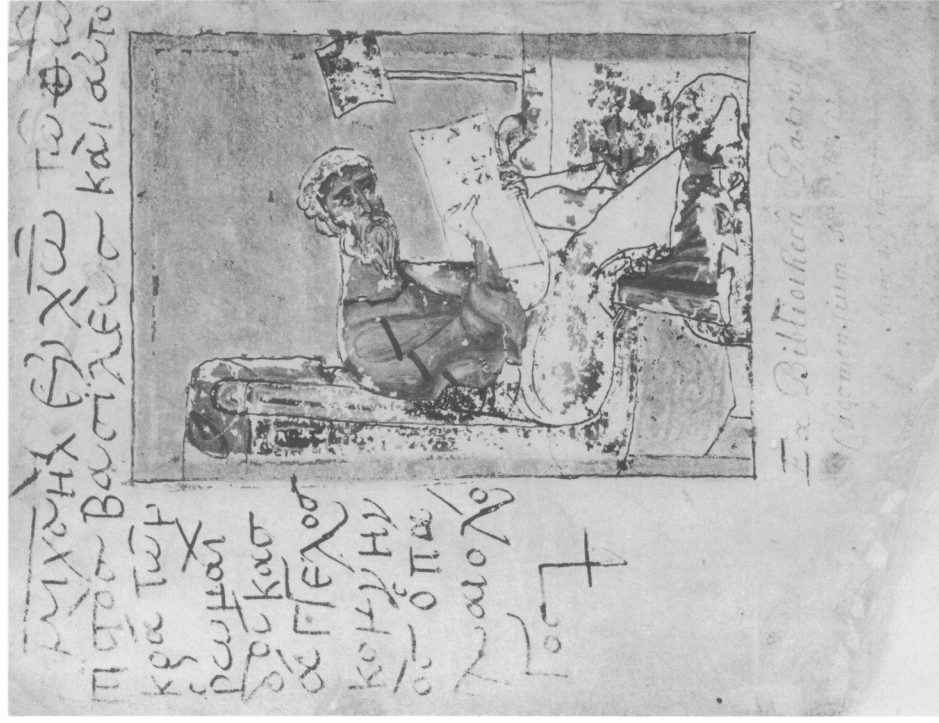 μιχαὴλ ἐν χω τω θω
πιστὸσ βασιλεὺσ και αὐτο
κρατωρ
ρωμαι
δουκασ
ἀγγελοσ
κομνην
ὸσ ὁ πα
λαιολό
γοσ
Ex Bibliotheca Patrum